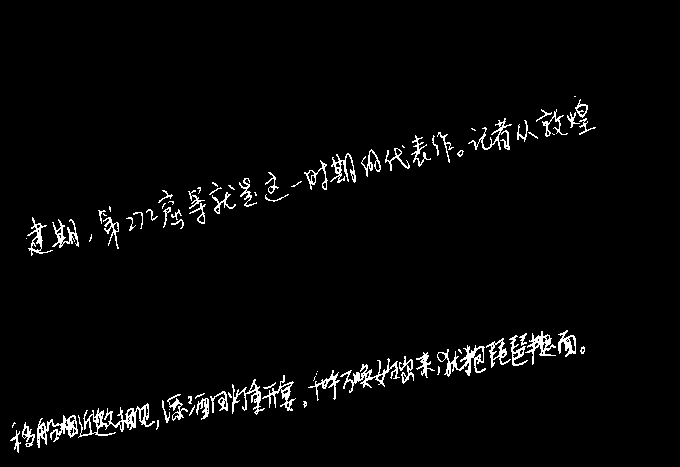 建期，第272窟等就是这一时期的代表作。记者从敦煌
移船相近邀相见，添酒回灯重开宴。千呼万唤始出来，犹抱琵琶半遮面。